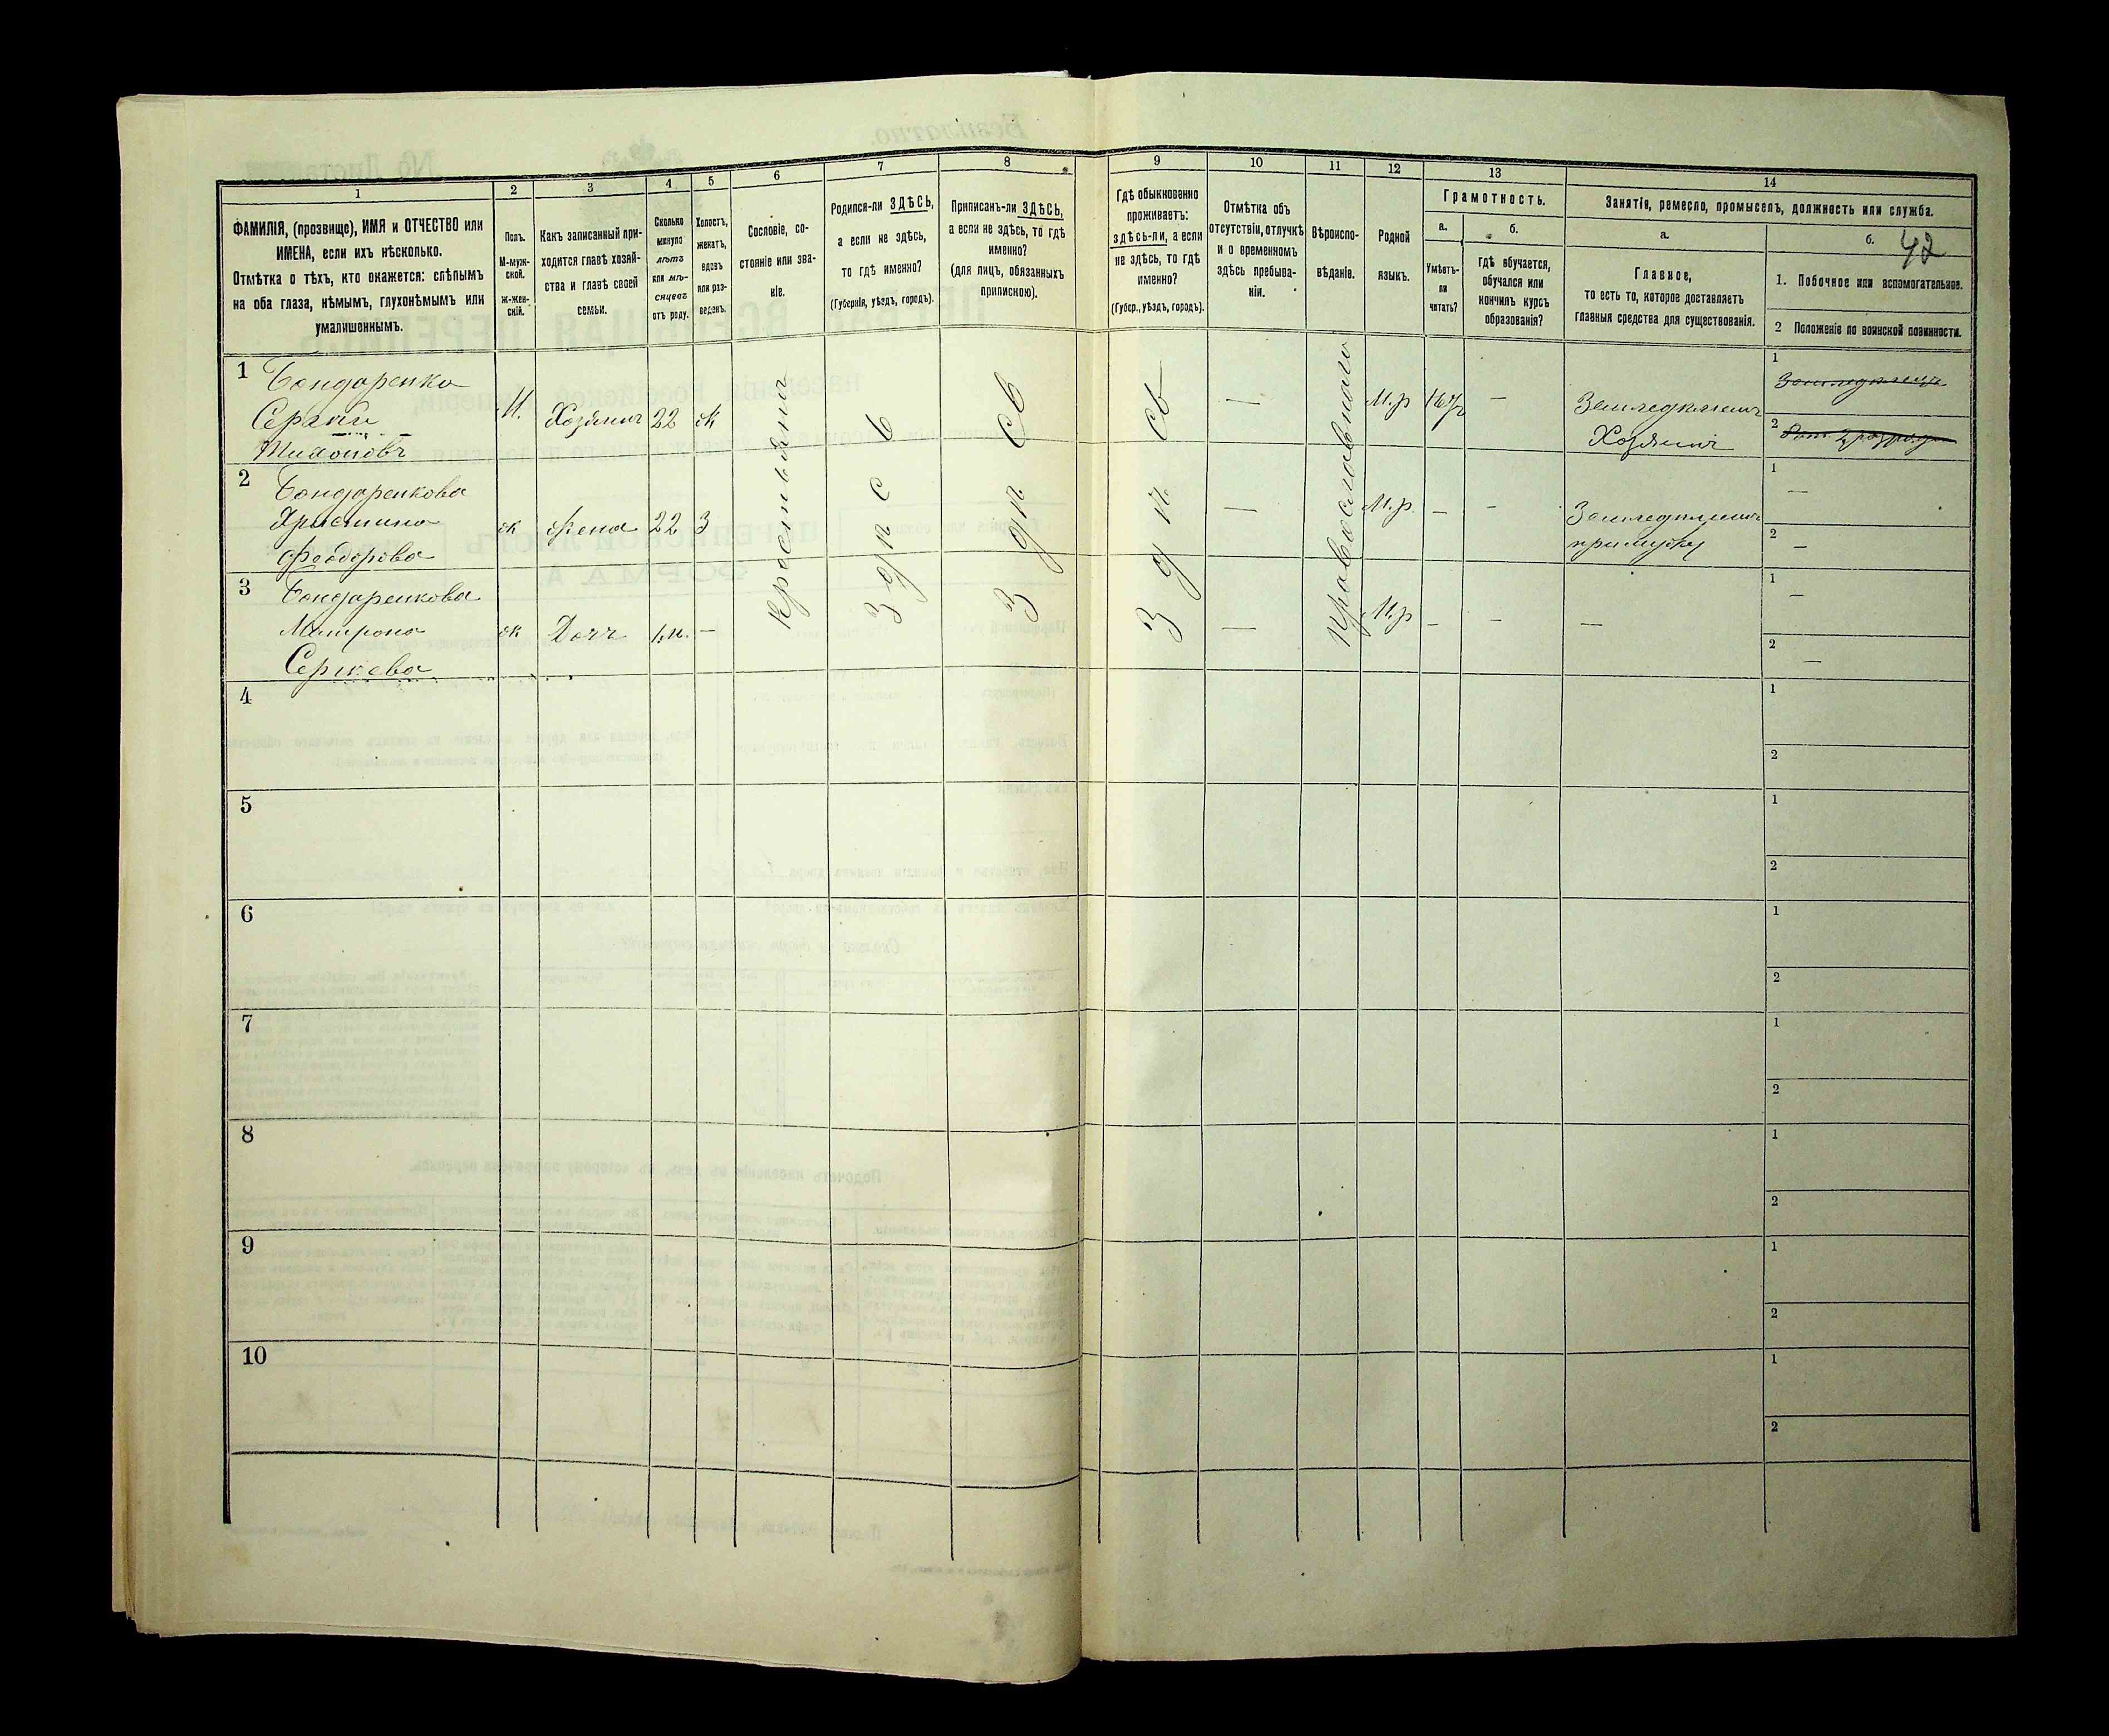 1 2 3 4 5 6 7 8 9 10 11 12 13 14
ФАМИЛІЯ, (прозвище), ИМЯ и ОТЧЕСТВО или
ИМЕНА, если ихъ нѣсколько.
Отмѣтка о тѣхъ, кто окажется: слѣпымъ
на оба глаза, нѣмымъ, глухонѣмымъ или
умалишеннымъ.
Полъ.
М-муж-
ской.
ж-жен-
скій.
Какъ записанный при-
ходится главѣ хозяй-
ства и главѣ своей
семьи.
Сколько
минуло
лѣтъ
или мѣ-
сяцевъ
отъ роду.
Холостъ,
женатъ,
вдовъ
или раз-
веденъ.
Сословіе, со-
стояніе или зва-
ніе.
Родился-ли ЗДѢСЬ,
а если не здѣсь,
то гдѣ именно?
(Губернія, уѣздъ, городъ).
Приписанъ-ли ЗДѢСЬ,
а если не здѣсь, то гдѣ
именно?
(для лицъ, обязанныхъ
припискою).
Гдѣ обыкновенно
проживаетъ:
здѣсь-ли, а если
не здѣсь, то гдѣ
именно?
(Губер., уѣздъ, городъ).
Отмѣтка объ
отсутствіи, отлучкѣ
и о временномъ
здѣсь пребыва-
ніи.
Вѣроиспо-
вѣданіе.
Родной
языкъ.
Грамотность.
а.
Умѣетъ-
ли
читать?
б.
гдѣ обучается,
обучался или
кончилъ курсъ
образованія?
Занятіе, ремесло, промыселъ, должность или служба.
а.
Главное,
то есть то, которое доставляетъ
главныя средства для существованія.
б. 42
1. Побочное или вспомогательное.
2 Положеніе по воинской повинности.
1 Бондаренко
Сергѣй
Тихоновъ
М. Хозяинъ 22 ж
М.р — Земледѣлецъ
Хозяинъ
1
2
2 Бондаренкова
Христина
Феодорова
ж жена 22 З
М.р. — — Земледѣлецъ
при мужѣ
1 —
2 —
3 Бондаренкова
Матрона
Сергѣева
ж Дочь 1.м. —
— М.р — — —
1 —
2 —
крестьяна
З д п с в
З д п с в
З д п с в
православнаго
4 1
2
5 1
2
6 1
2
7 1
2
8 1
2
9 1
2
10 1
2